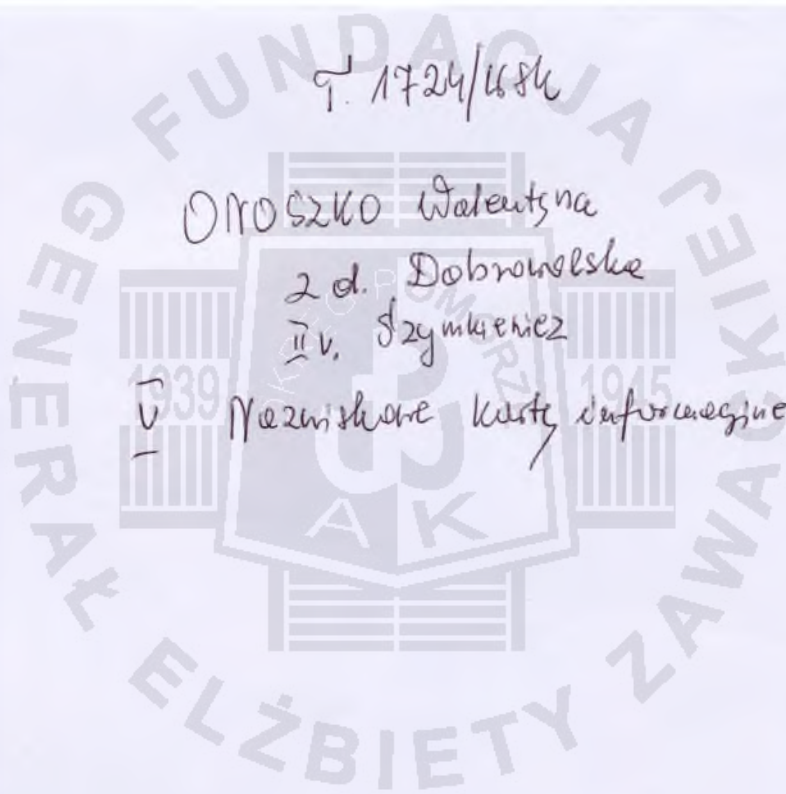 T. 1724/WSK
OROSZKO Walentyna
z d. Dobrowolska
II v. Szymkiewicz
V Nazwiskowe karty informacyjne
FUNDACJA GENERAŁ ELŻBIETY ZAWACKIEJ
OKRĘG POMORZE
1939 1945
AK